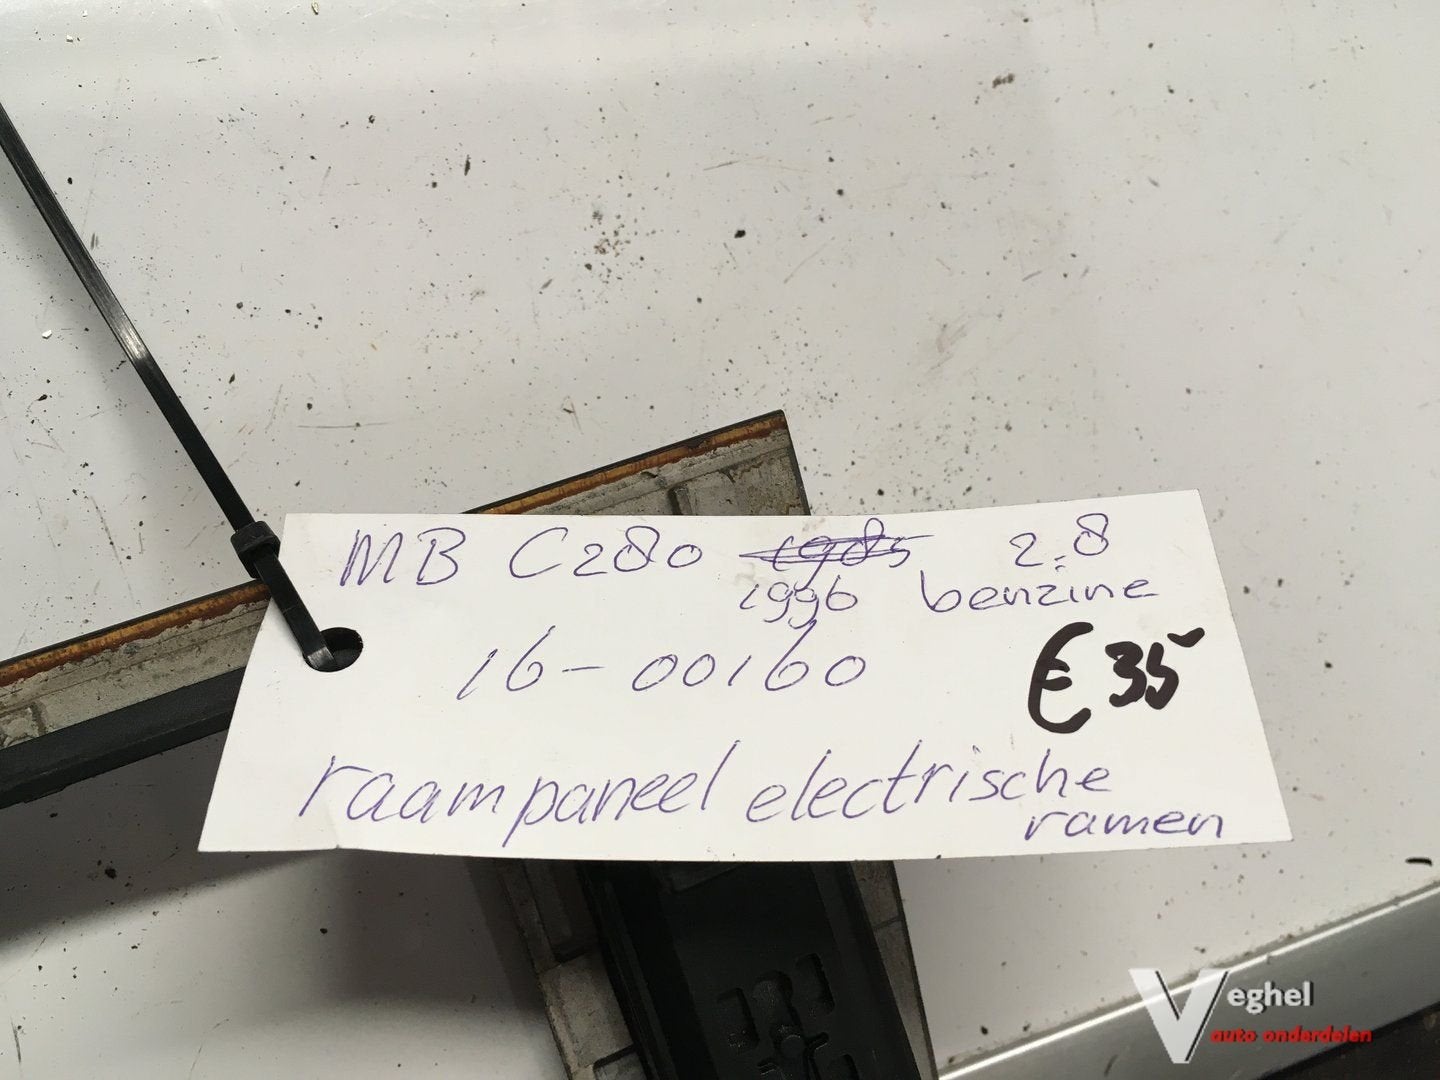 MB C280 1985 2.8
1996 benzine
16-00160
€ 35
raampaneel electrische
ramen
Veghel
auto onderdelen